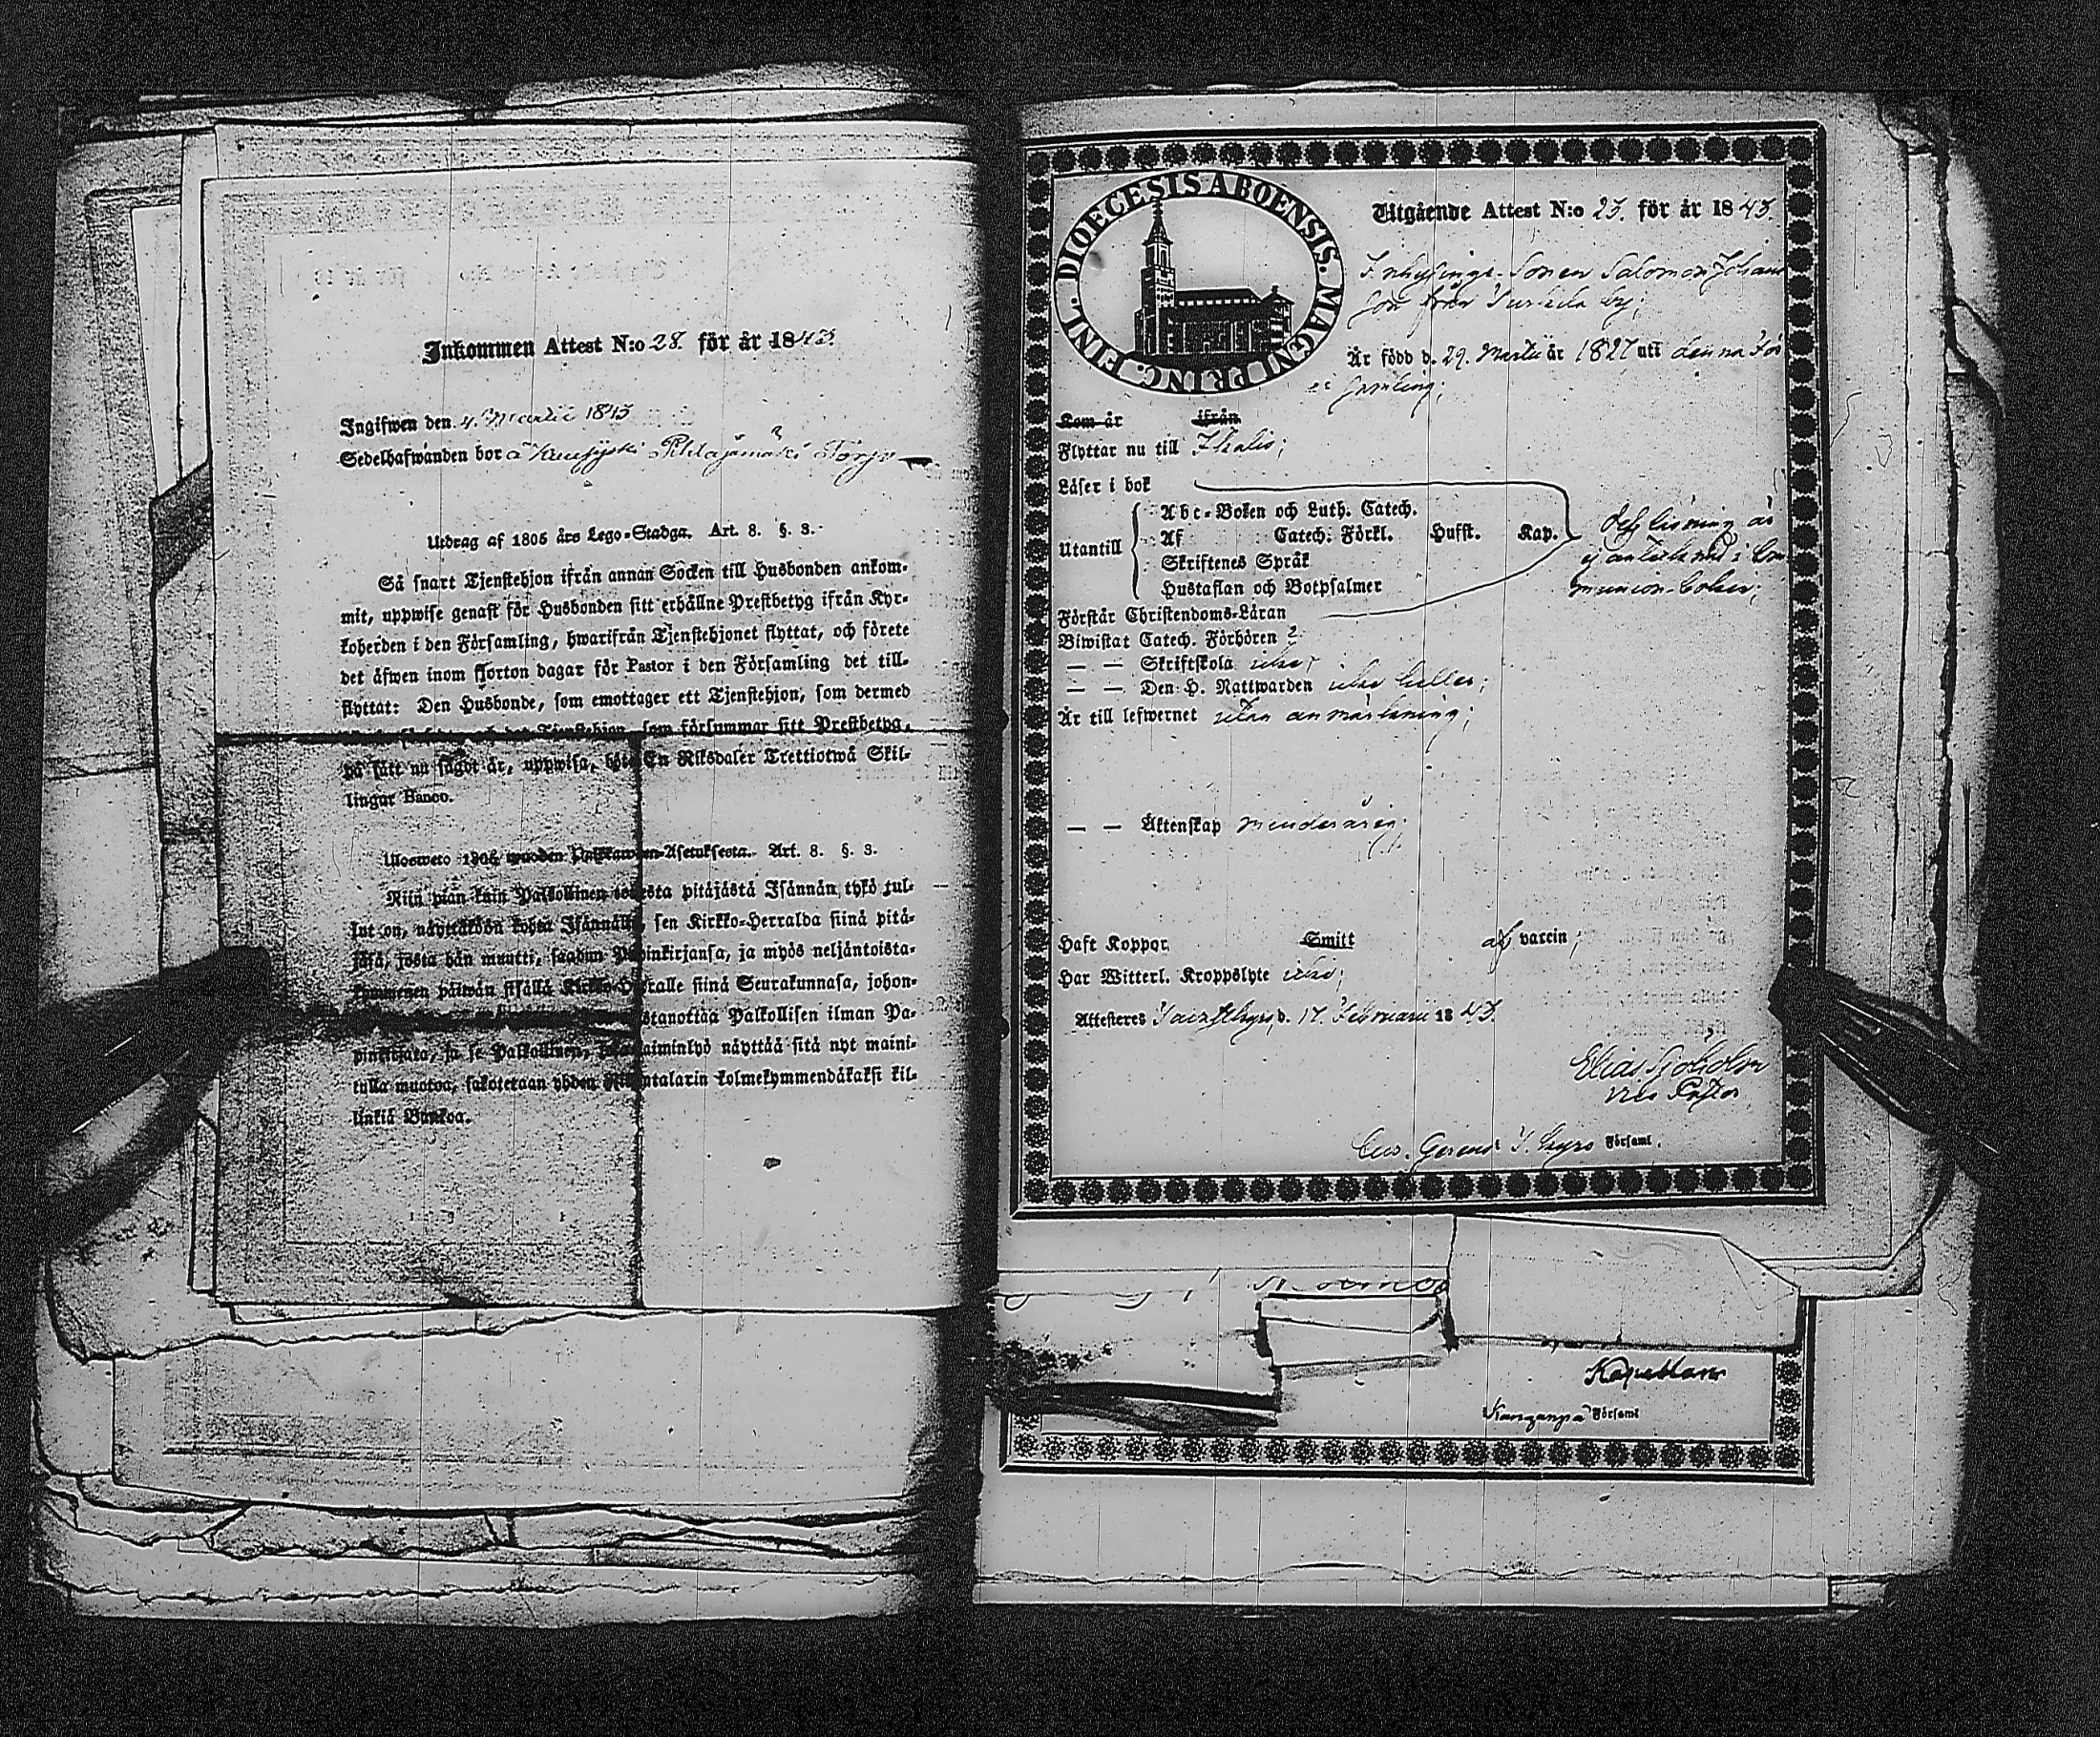 Inkommen Attest N:o 28. för år 1843.
Ingifwen den 4. Martii 1843
Sedelhafwanden bor å Pihlajamäki Torp
Utdrag af 1805 års Lego-Stadga. Art. 8. §. 3.
Så snart Tjenstehjon ifrån annan Socken till Husbonden ankom-
mit, uppwise genast för Husbonden sitt erhållne Prestbetyg ifrån Kyr-
koherden i den Församling, hwarifrån Tjenstehjonet flyttat, och förete
det äfwen inom fjorton dagar för Pastor i den Församling det till-
flyttat: Den Husbonde, som emottager ett Tjenstehjon, som dermed
som försummar sitt Prestbetyg,
på sätt nu sagdt är, uppwisa, böte En Riksdaler Trettiotwå Skil-
lingar Banco.
Ulosweto 1805 wuoden Palkkawäen-Asetuksesta. Art. 8. §. 3.
Niin pian kuin Palkollinen toisesta pitäjästä Isännän tykö tul-
lut on, näyttäköön kohta Isännälle, sen Kirkko-Herralda siinä pitä-
jäsä, josta hän muutti, saadun Papinkirjansa, ja myös neljäntoista-
kymmenen päiwän sisällä Kirkko-Herralle siinä Seurakunnasa, johon-
stanottaa Palkollisen ilman Pa-
pinkirjata, ja se Palkollinen, laiminlyö näyttää sitä nyt maini-
tulla muotoa, sakotetaan yhden Riksintalarin kolmekymmendäkaksi kil-
linkiä Bankoa.
FINL. DIOECESIS ABOENSIS. MAGNI PRINC.
Utgående Attest N:o 23. för år 1843.
Inhysings-Sonen Salomon Johans
son från by;
Är född d. 29. Martii år 1827 uti denna För
samling;
Kom år ifrån
Flyttar nu till Ikalis;
Läser i bok
Abc-Boken och Luth. Catech.
Utantill Af Catech. Förkl. Hufst. Kap.
Skriftenes Språk
Hustaflan och Botpsalmer
dess läsning är
ej antecknad i Com
munion-boken;
Förstår Christendoms-Läran
Biwistat Catech. Förhören ?
— — Skriftskola icke;
— — Den H. Nattwarden icke heller;
Är till lefwernet utan anmärkning;
— — Äktenskap minderårig.
Haft Koppor Smitt af vaccin;
Har Witterl. Kroppslyte icke;
Attesteres Tavastkyro, d. 17. Februarii 1843.
Elias Sjöholm
Vice Pastor
Gerens T. Kyro Församl.
Kapellan
Kangaspä Församl